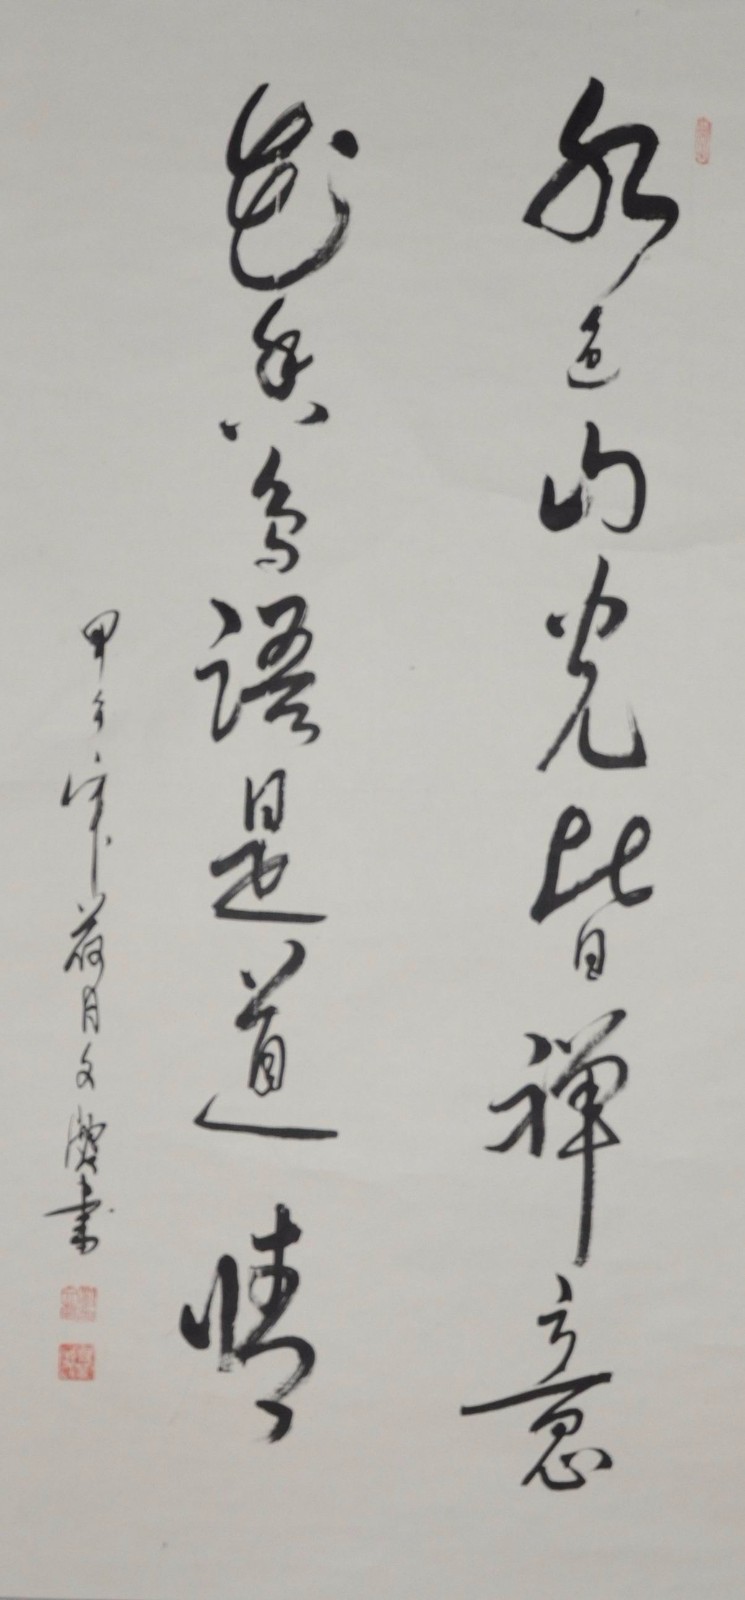 水色山光皆禪意
花香鳥語是道情
甲午年荷月文
書